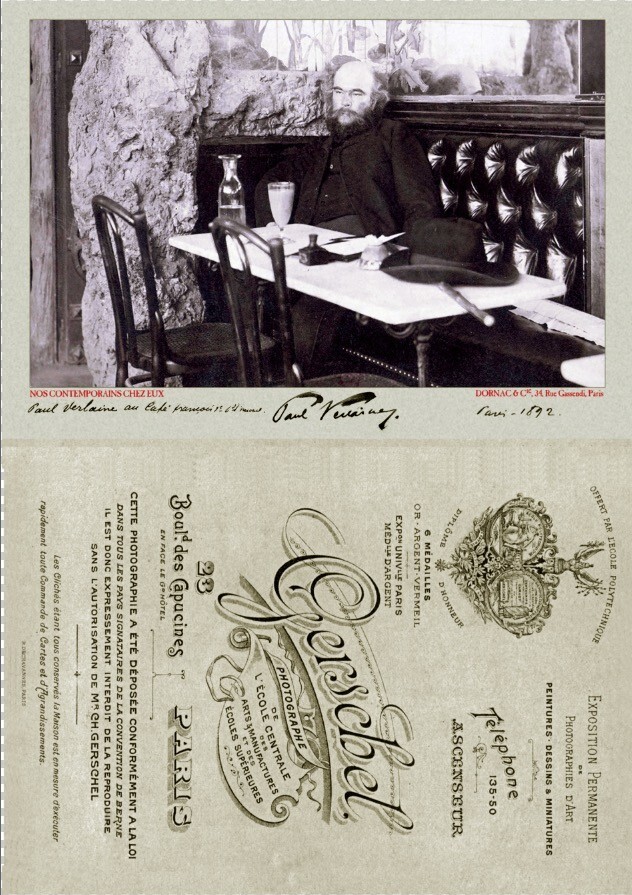 NOS CONTEMPORAINS CHEZ EUX
DORNAC & Cie, 34, Rue Gassendi, Paris
Paul Verlaine au Café
Paul Verlaine.
Paris - 1892.
OFFERT PAR L'ECOLE POLYTECHNIQUE
DIPLÔME D'HONNEUR
6 MÉDAILLES
OR - ARGENT - VERMEIL
EXPon UNIVlle PARIS
MÉDlle D'ARGENT
EXPOSITION PERMANENTE
DE
PHOTOGRAPHIES D'ART
PEINTURES - DESSINS & MINIATURES
Téléphone
135-50
ASCENSEUR
Gerschel.
PHOTOGRAPHE
DE
L'ÉCOLE CENTRALE
DES
ARTS & MANUFACTURES
ET DES
ÉCOLES SUPÉRIEURES
23
Bould. des Capucines
EN FACE LE Gd HÔTEL
PARIS
CETTE PHOTOGRAPHIE A ÉTÉ DÉPOSÉE CONFORMÉMENT A LA LOI
DANS TOUS LES PAYS SIGNATAIRES DE LA CONVENTION DE BERNE
IL EST DONC EXPRESSEMENT INTERDIT DE LA REPRODUIRE
SANS L'AUTORISATION DE Mr CH. GERSCHEL
Les Clichés étant tous conservés la Maison est en mesure d'exécuter
rapidement toute Commande de Cartes et d'Agrandissements.